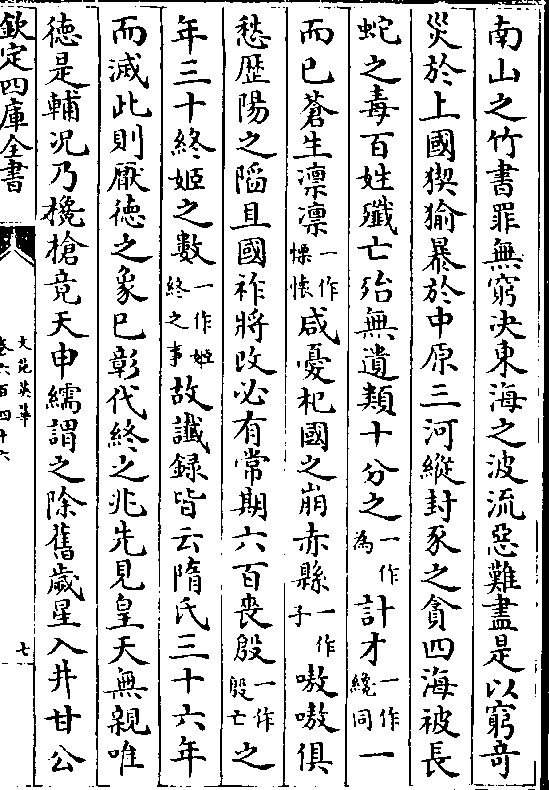 南山之竹書罪無窮决東海之波流惡難盡是以窮竒
災於上國猰㺄暴於中原三河縱封豕之貪四海被長
蛇之毒百姓殱亡殆無遺類十分之一作為計才一作纔同一
而已蒼生凛凛一作慄懐咸憂杞國之崩赤縣一作子嗷嗷俱
愁歴陽之䧟且國祚將改必有常期六百喪殷一作殷亡之
年三十終姬之數一作姬終之事故讖録皆云隋氏三十六年
而滅此則厭徳之象已彰代終之兆先見皇天無親唯
徳是輔况乃欃槍竟天申繻謂之除舊歳星入井甘公
欽定四庫全書
文苑英華
卷六百四十六
七